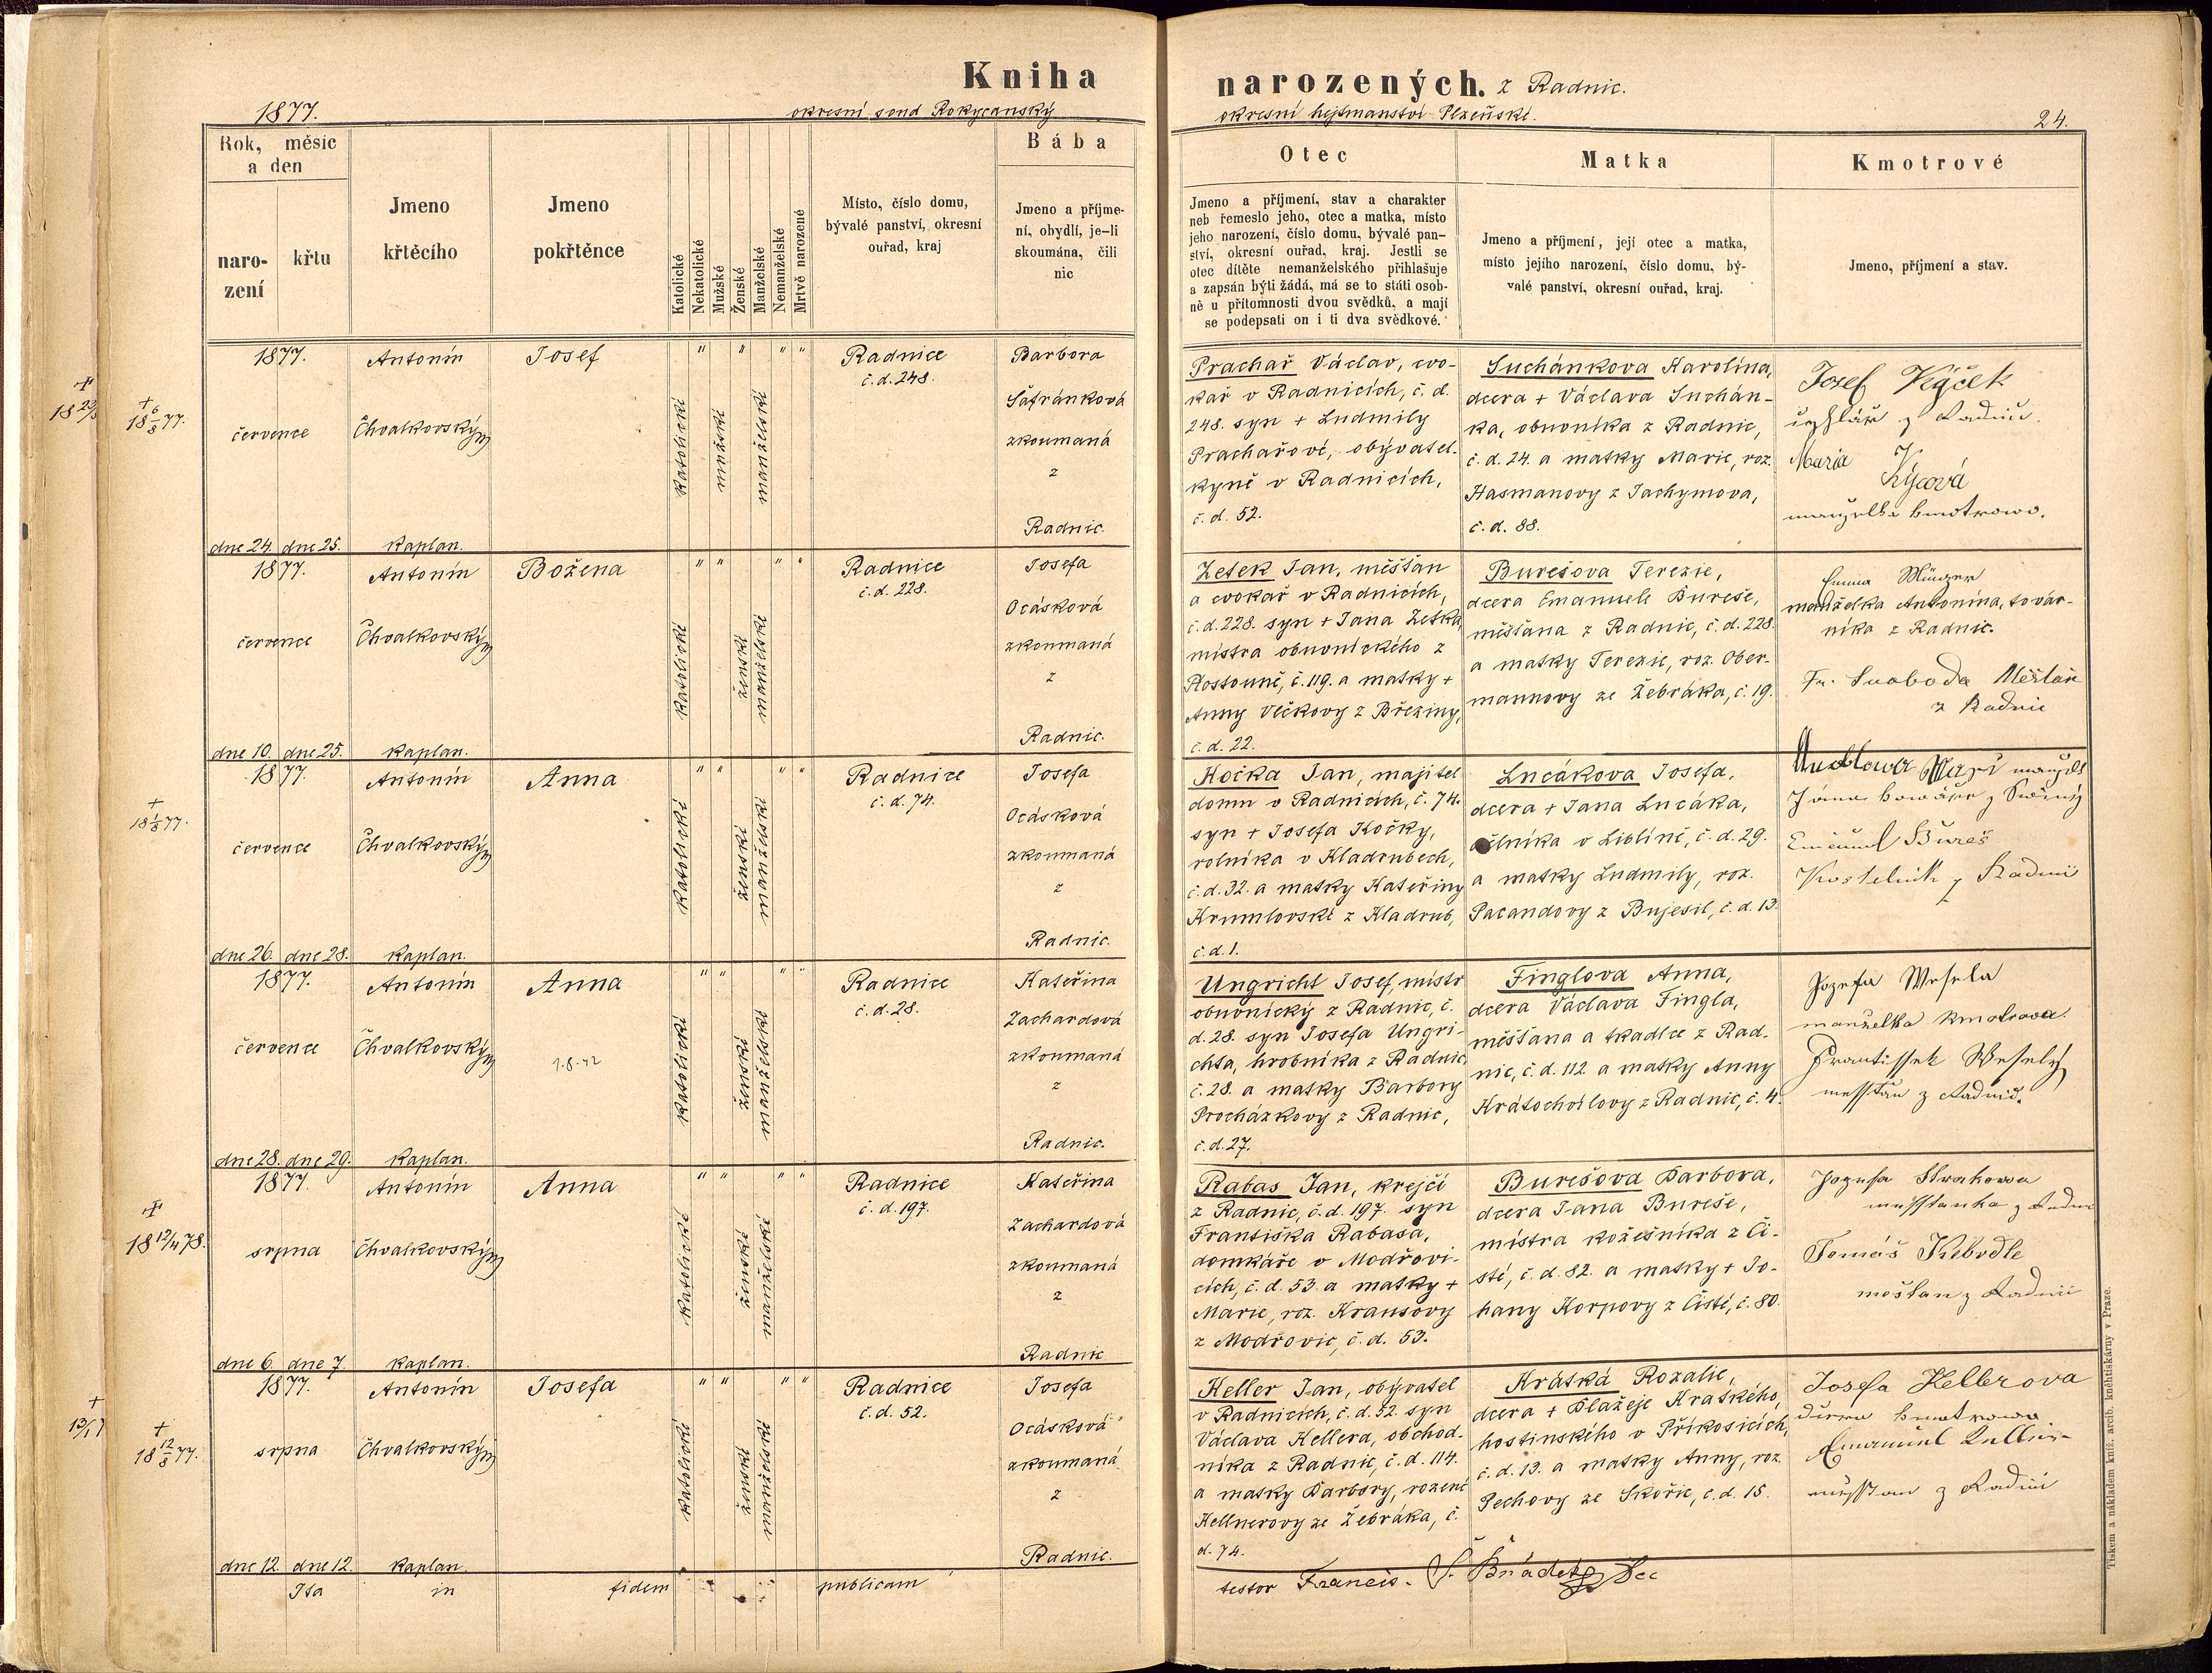 Kniha
1877.
okresní soud Rokycanský
Rok, měsíc
a den
naro-
zení
křtu
Jmeno
křtěcího
Jmeno
pokřtěnce
Katolické
Nekatolické
Mužské
Ženské
Manželské
Nemanželské
Mrtvě narozené
Místo, číslo domu,
bývalé panství, okresní
ouřad, kraj
Bába
Jmeno a příjme-
ní, obydlí, je-li
skoumána, čili
nic
1877.
července
dne 24. dne 25.
Antonín
Chvalkovský
kaplan.
Josef
" " " "
katolické
mužské
manželské
Radnice
č. d. 248.
Barbora
Šafránková
zkoumaná
z
Radnic.
+
18 6/8 77.
1877.
července
dne 10. dne 25.
Antonín
Chvalkovský
kaplan.
Božena
" " " "
katolické
ženské
manželské
Radnice
č. d. 228.
Josefa
Ocásková
zkoumaná
z
Radnic.
+
18 1/8 77.
1877.
července
dne 26. dne 28.
Antonín
Chvalkovský
kaplan.
Anna
" " " "
katolické
ženské
manželské
Radnice
č. d. 74.
Josefa
Ocásková
zkoumaná
z
Radnic.
1877.
července
dne 28. dne 29.
Antonín
Chvalkovský
kaplan.
Anna
" " " "
katolické
ženské
manželské
Radnice
č. d. 28.
Kateřina
Zachardová
zkoumaná
z
Radnic.
+
18 12/4 78.
1877.
srpna
dne 6. dne 7.
Antonín
Chvalkovský
kaplan.
Anna
" " " "
katolické
ženské
manželské
Radnice
č. d. 197.
Kateřina
Zachardová
zkoumaná
z
Radnic
+
18 12/8 77.
1877.
srpna
dne 12. dne 12.
Antonín
Chvalkovský
kaplan.
Josefa
" " " "
katolické
ženské
manželské
Radnice
č. d. 52.
Josefa
Ocásková
zkoumaná
z
Radnic.
Ita in fidem publicam
narozených. z Radnic.
okresní hejtmanství Plzeňské.
24.
Otec
Jmeno a příjmení, stav a charakter
neb řemeslo jeho, otec a matka, místo
jeho narození, číslo domu, bývalé pan-
ství, okresní ouřad, kraj. Jestli se
otec dítěte nemanželského přihlašuje
a zapsán býti žádá, má se to státi osob-
ně u přítomnosti dvou svědků, a mají
se podepsati on i ti dva svědkové.
Matka
Jmeno a příjmení, její otec a matka,
místo jejího narození, číslo domu, bý-
valé panství, okresní ouřad, kraj.
Kmotrové
Jmeno, příjmení a stav.
Prachař Václav, cvo-
kař v Radnicích, č. d.
248. syn + Ludmily
Prachařové, obyvatel-
kyně v Radnicích,
č. d. 52.
Suchánkova Karolína,
dcera + Václava Suchán-
ka, obuvníka z Radnic,
č. d. 24. a matky Marie, roz.
Hasmanovy z Jachymova,
č. d. 88.
Josef
z Radnic.
Maria
Kýcová
manželka kmotrowo.
Zetek Jan, měšťan
a cvokař v Radnicích,
č. d. 228. syn + Jana Zetka,
mistra obuvnického z
Hostouně, č. 119. a matky +
Anny Vlčkovy z Březiny,
č. d. 22.
Burešova Terezie,
dcera Emanuele Bureše,
měšťana z Radnic, č. d. 228.
a matky Terezie, roz. Ober-
mannovy ze Žebráka, č. 19.
Emma Münzer
manželka Antonína, továr-
níka z Radnic.
Fr. Svoboda Měšťan
z Radnic
Kočka Jan, majitel
domu v Radnicích, č. 74.
syn + Josefa Kočky,
rolníka v Kladrubech,
č. d. 32. a matky Kateřiny
Krumlovské z Kladrub,
č. d. 1.
Lucákova Josefa,
dcera + Jana Lucáka,
v Liblíně, č. d. 29.
a matky Ludmily, roz.
Pacandovy z Bujesil, č. d. 13.
Bureš
Kostelník z Radnic
Ungricht Josef, mistr
obuvnický z Radnic, č.
d. 28. syn Josefa Ungri-
chta, hrobníka z Radnic,
č. 28. a matky Barbory
Procházkovy z Radnic,
č. d. 27.
Finglova Anna,
dcera Václava Fingla,
měšťana a tkadlce z Rad-
nic, č. d. 112. a matky Anny
Kratochvílovy z Radnic, č. 4.
Jozefa Wesela
manželka kmotrova.
Frantissek Weselý
messtan z Radnic.
Rabas Jan, krejčí
z Radnic, č. d. 197. syn
Františka Rabasa,
domkáře v Modřovi-
cích, č. d. 53. a matky +
Marie, roz. Krausovy
z Modřovic, č. d. 53.
Burešova Barbora,
dcera Jana Bureše,
mistra kožešníka z Či-
sté, č. d. 82. a matky + Jo-
hany Korpovy z Čisté, č. 80.
Jozefa
Tomáš
mešťan z Radnic
Keller Jan, obyvatel
v Radnicích, č. d. 52. syn
Václava Kellera, obchod-
níka z Radnic, č. d. 114.
a matky Barbory, rozené
Kellnerovy ze Žebráka, č.
d. 74.
Krátká Rozalie,
dcera + Blažeje Kratkého,
hostinského v Příkosicích,
č. d. 13. a matky Anny, roz.
Pechovy ze Skořic, č. d. 15.
Josefa Kellerova
dcera kmotrowa
Emanuel Keller
z Radnic
testor Francis.
Tiskem a nákladem kníž. arcib. kněhtiskárny v Praze.